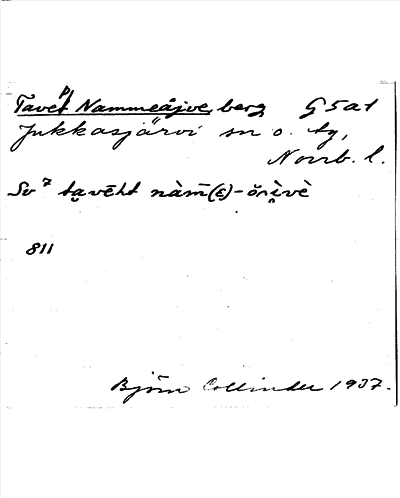 Tavet Nammeåjve, berg G 5 a 1
Jukkasjärvi sn o. tg,
Norrb. l.
Sv 7
811
Björn Collinder 1937.